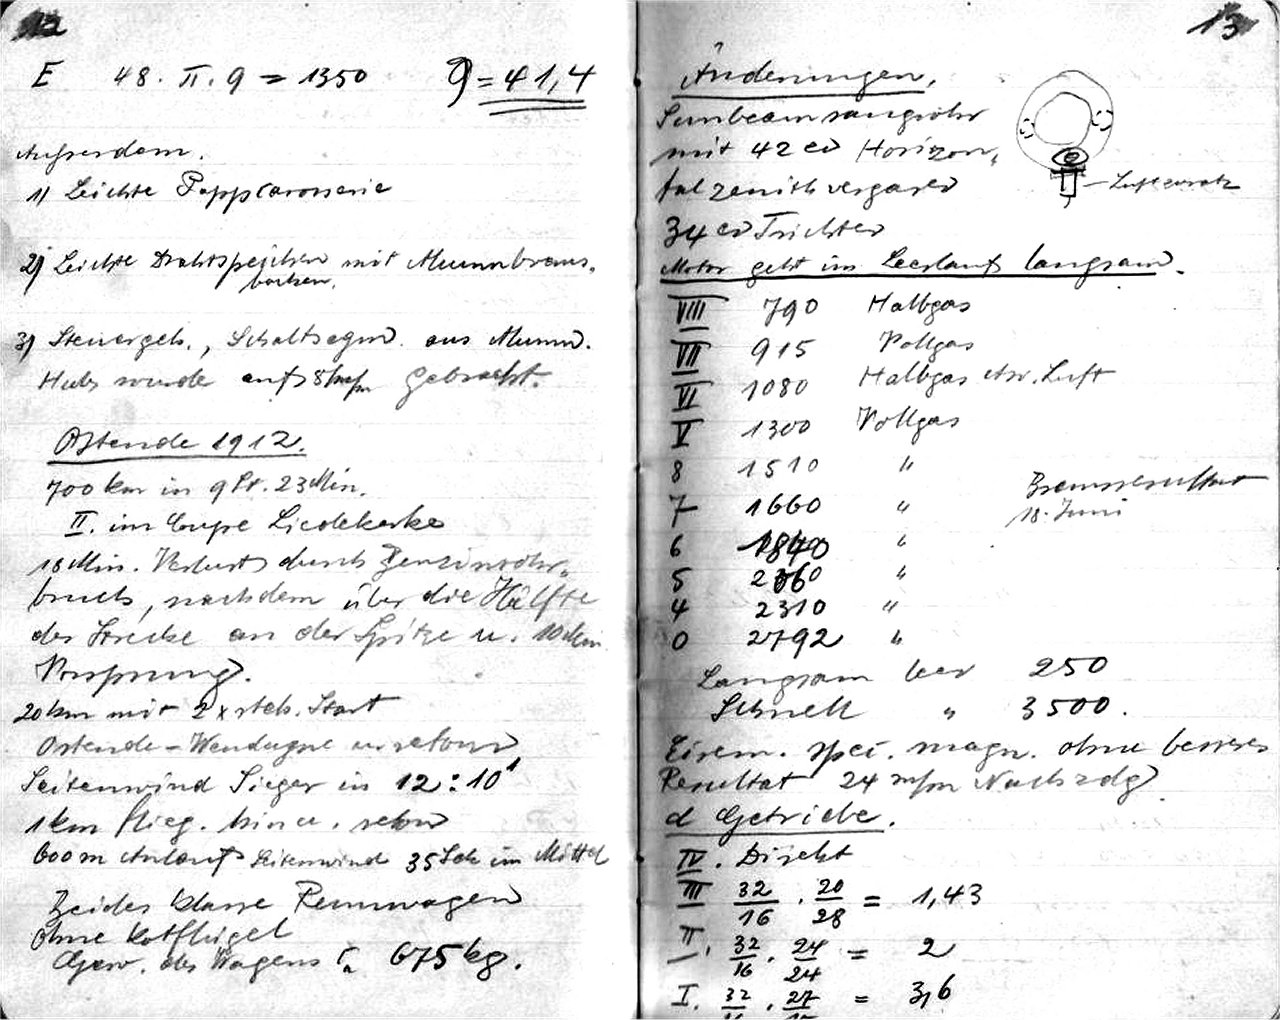 12
E 48. II. 9 = 1350 g = 41,4
Ausserdem.
1) Leichte Pappcarosserie
2) Leichte Drahtspeichen mit Alumnbrems,
backen.
3) Steuergeh., Schaltsegm. aus Alumn.
Hub wurde auf 8 m/m gebracht.
Ostende 1912.
700 km in 9 St. 23 Min.
II. im Coupe Liedekerke
18 Min. Verlust durch Benzinrohr,
bruch, nachdem über die Hälfte
der Strecke an der Spitze u. 10 Min
Vorsprung.
20 km mit 2 x steh. Start
Ostende - Wendugne u retour
Seitenwind Sieger in 12:10'
1 km flieg. hin u. retour
600 m Anlauf Seitenwind 35 Sek im Mittel
Beides Klasse Rennwagen
Ohne Kotflügel
Gew. des Wagens ca 675 kg.
13
Änderungen.
Sunbeam saugrohr
mit 42 er Horizon,
talzenithvergaser
34 er Trichter
Luftzusatz
Motor geht im Leerlauf langsam.
VIII 790 Halbgas
VII 915 Vollgas
VI 1080 Halbgas Luft
V 1300 Vollgas
8 1510 "
7 1660 "
Bremsresultat
18. Juni
6 1840 "
5 2060 "
4 2310 "
0 2792 "
Langsam leer 250
Schnell " 3500.
Eisem. spei. magn. ohne besseres
Resultat 24 m/m Nachzdg
d Getriebe.
IV. Direkt
III 32/16 . 20/28 = 1,43
II. 32/16 . 24/24 = 2
I. 32/16 . 27/15 = 3,6